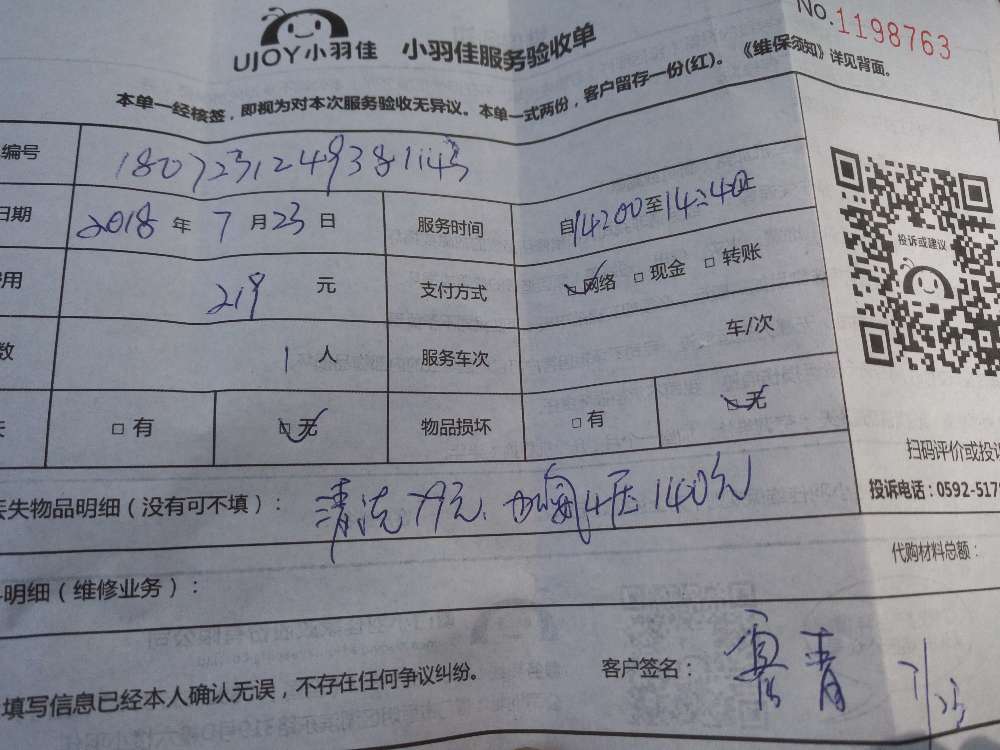 No.1198763
UJOY小羽佳 小羽佳服务验收单
本单一经核签，即视为对本次服务验收无异议。本单一式两份，客户留存一份(红)。《维保须知》详见背面。
编号 180723124938114号
日期 2018 年 7 月 23 日 服务时间 自14:00至14:40止
费用 219 元 支付方式 □网络 □现金 □转账
数 1 人 服务车次 车/次
失 □有 □无 物品损坏 □有 □无
投诉或建议
扫码评价或投诉
投诉电话：0592-517
丢失物品明细（没有可不填）： 清洗79元. 加氟4压 140元
代购材料总额：
明细（维修业务）：
填写信息已经本人确认无误，不存在任何争议纠纷。
客户签名： 青 7/23